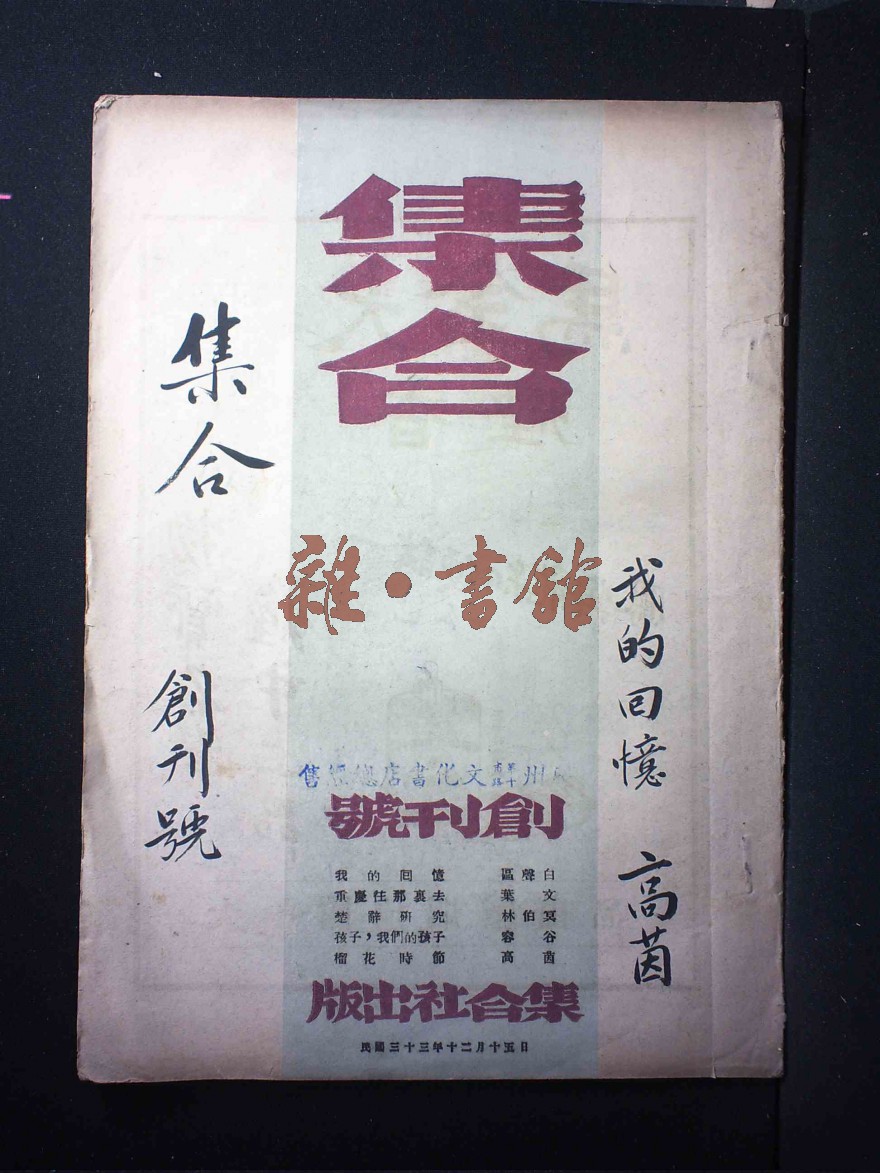 集合
集合 創刊號
我的回憶 高茵
雜·書館
州文化書店總經售
創刊號
我的囘憶 區聲白
重慶往那裏去 葉文
楚辭研究 林伯冥
孩子，我們的孩子 容谷
榴花時節 高茵
集合社出版
民國三十三年十二月十五日